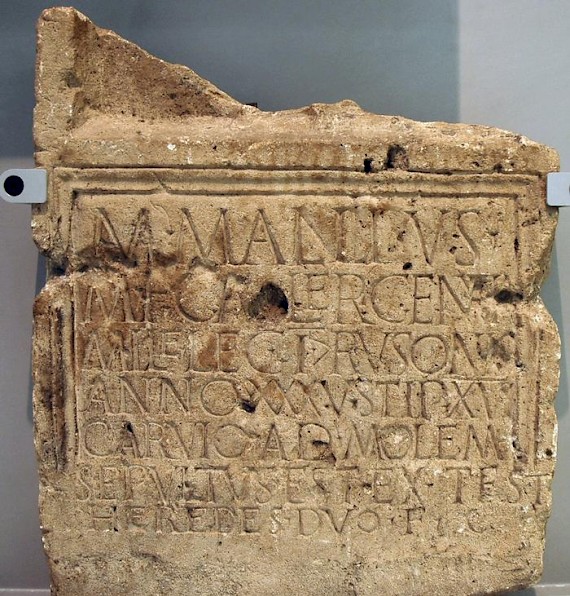 M·MALLIVS·
M·F·GALER·GENV
MIL·LEG·I·Ɔ·RVSONI
ANNO·XXXV·STIP·XV
CARVIO·AD·MOLEM
SEPVLTVS·EST·EX·TEST
HEREDES·DVO·F·C